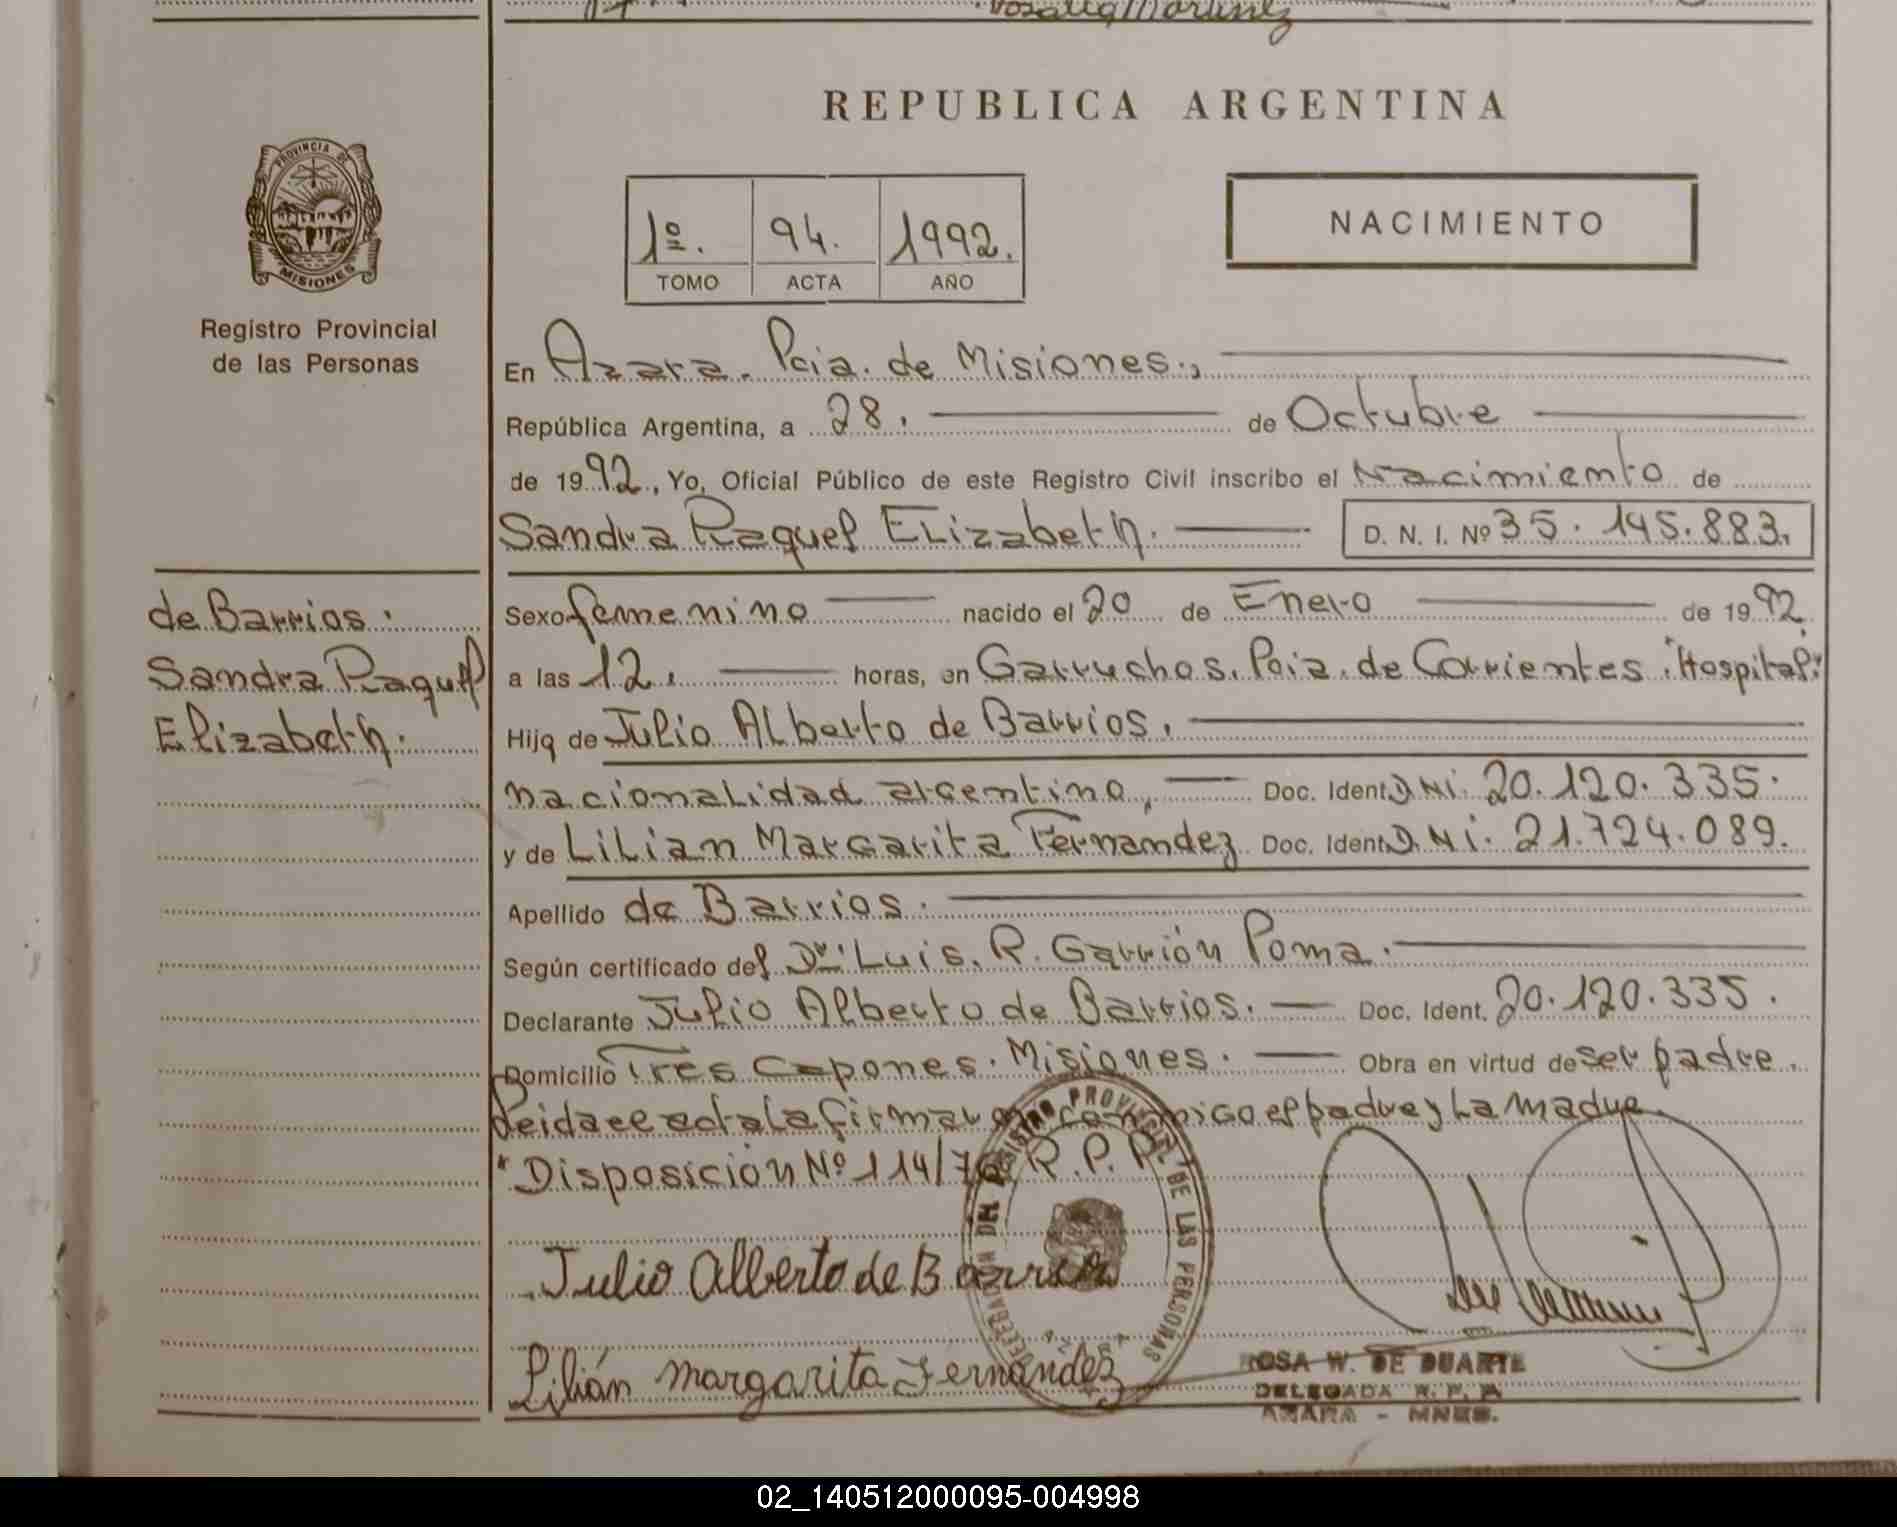 Rosalia Martinez
REPUBLICA ARGENTINA
PROVINCIA DE
MISIONES
Registro Provincial
de las Personas
1º. 94. 1992.
TOMO ACTA AÑO
NACIMIENTO
En Azara. Pcia. de Misiones.,
República Argentina, a 28. de Octubre
de 1992., Yo, Oficial Público de este Registro Civil inscribo el Nacimiento de
Sandra Raquel Elizabeth. D. N. I. Nº 35.145.883.
de Barrios.
Sandra Raquel
Elizabeth.
Sexo femenino nacido el 20 de Enero de 1992.
a las 12. horas, en Garruchos. Pcia. de Corrientes. "Hospital."
Hija de Julio Alberto de Barrios.
nacionalidad argentino, Doc. Ident. DNi. 20.120.335.
y de Lilian Margarita Fernández Doc. Ident. DNi. 21.724.089.
Apellido de Barrios.
Según certificado del Dr. Luis. R. Garrión Poma.
Declarante Julio Alberto de Barrios. Doc. Ident. 20.120.335.
Domicilio Tres Capones. Misiones. Obra en virtud de ser padre.
Leida el acta la firmaron conmigo el padre y La madre.
* Disposición Nº 114/76 R.P.P.
REGISTRO PROVINCIAL DE LAS PERSONAS
AZARA
Julio Alberto de Barrios
Lilián Margarita Fernández
ROSA W. DE DUARTE
DELEGADA R. P. P.
AZARA - MNES.
02_140512000095-004998